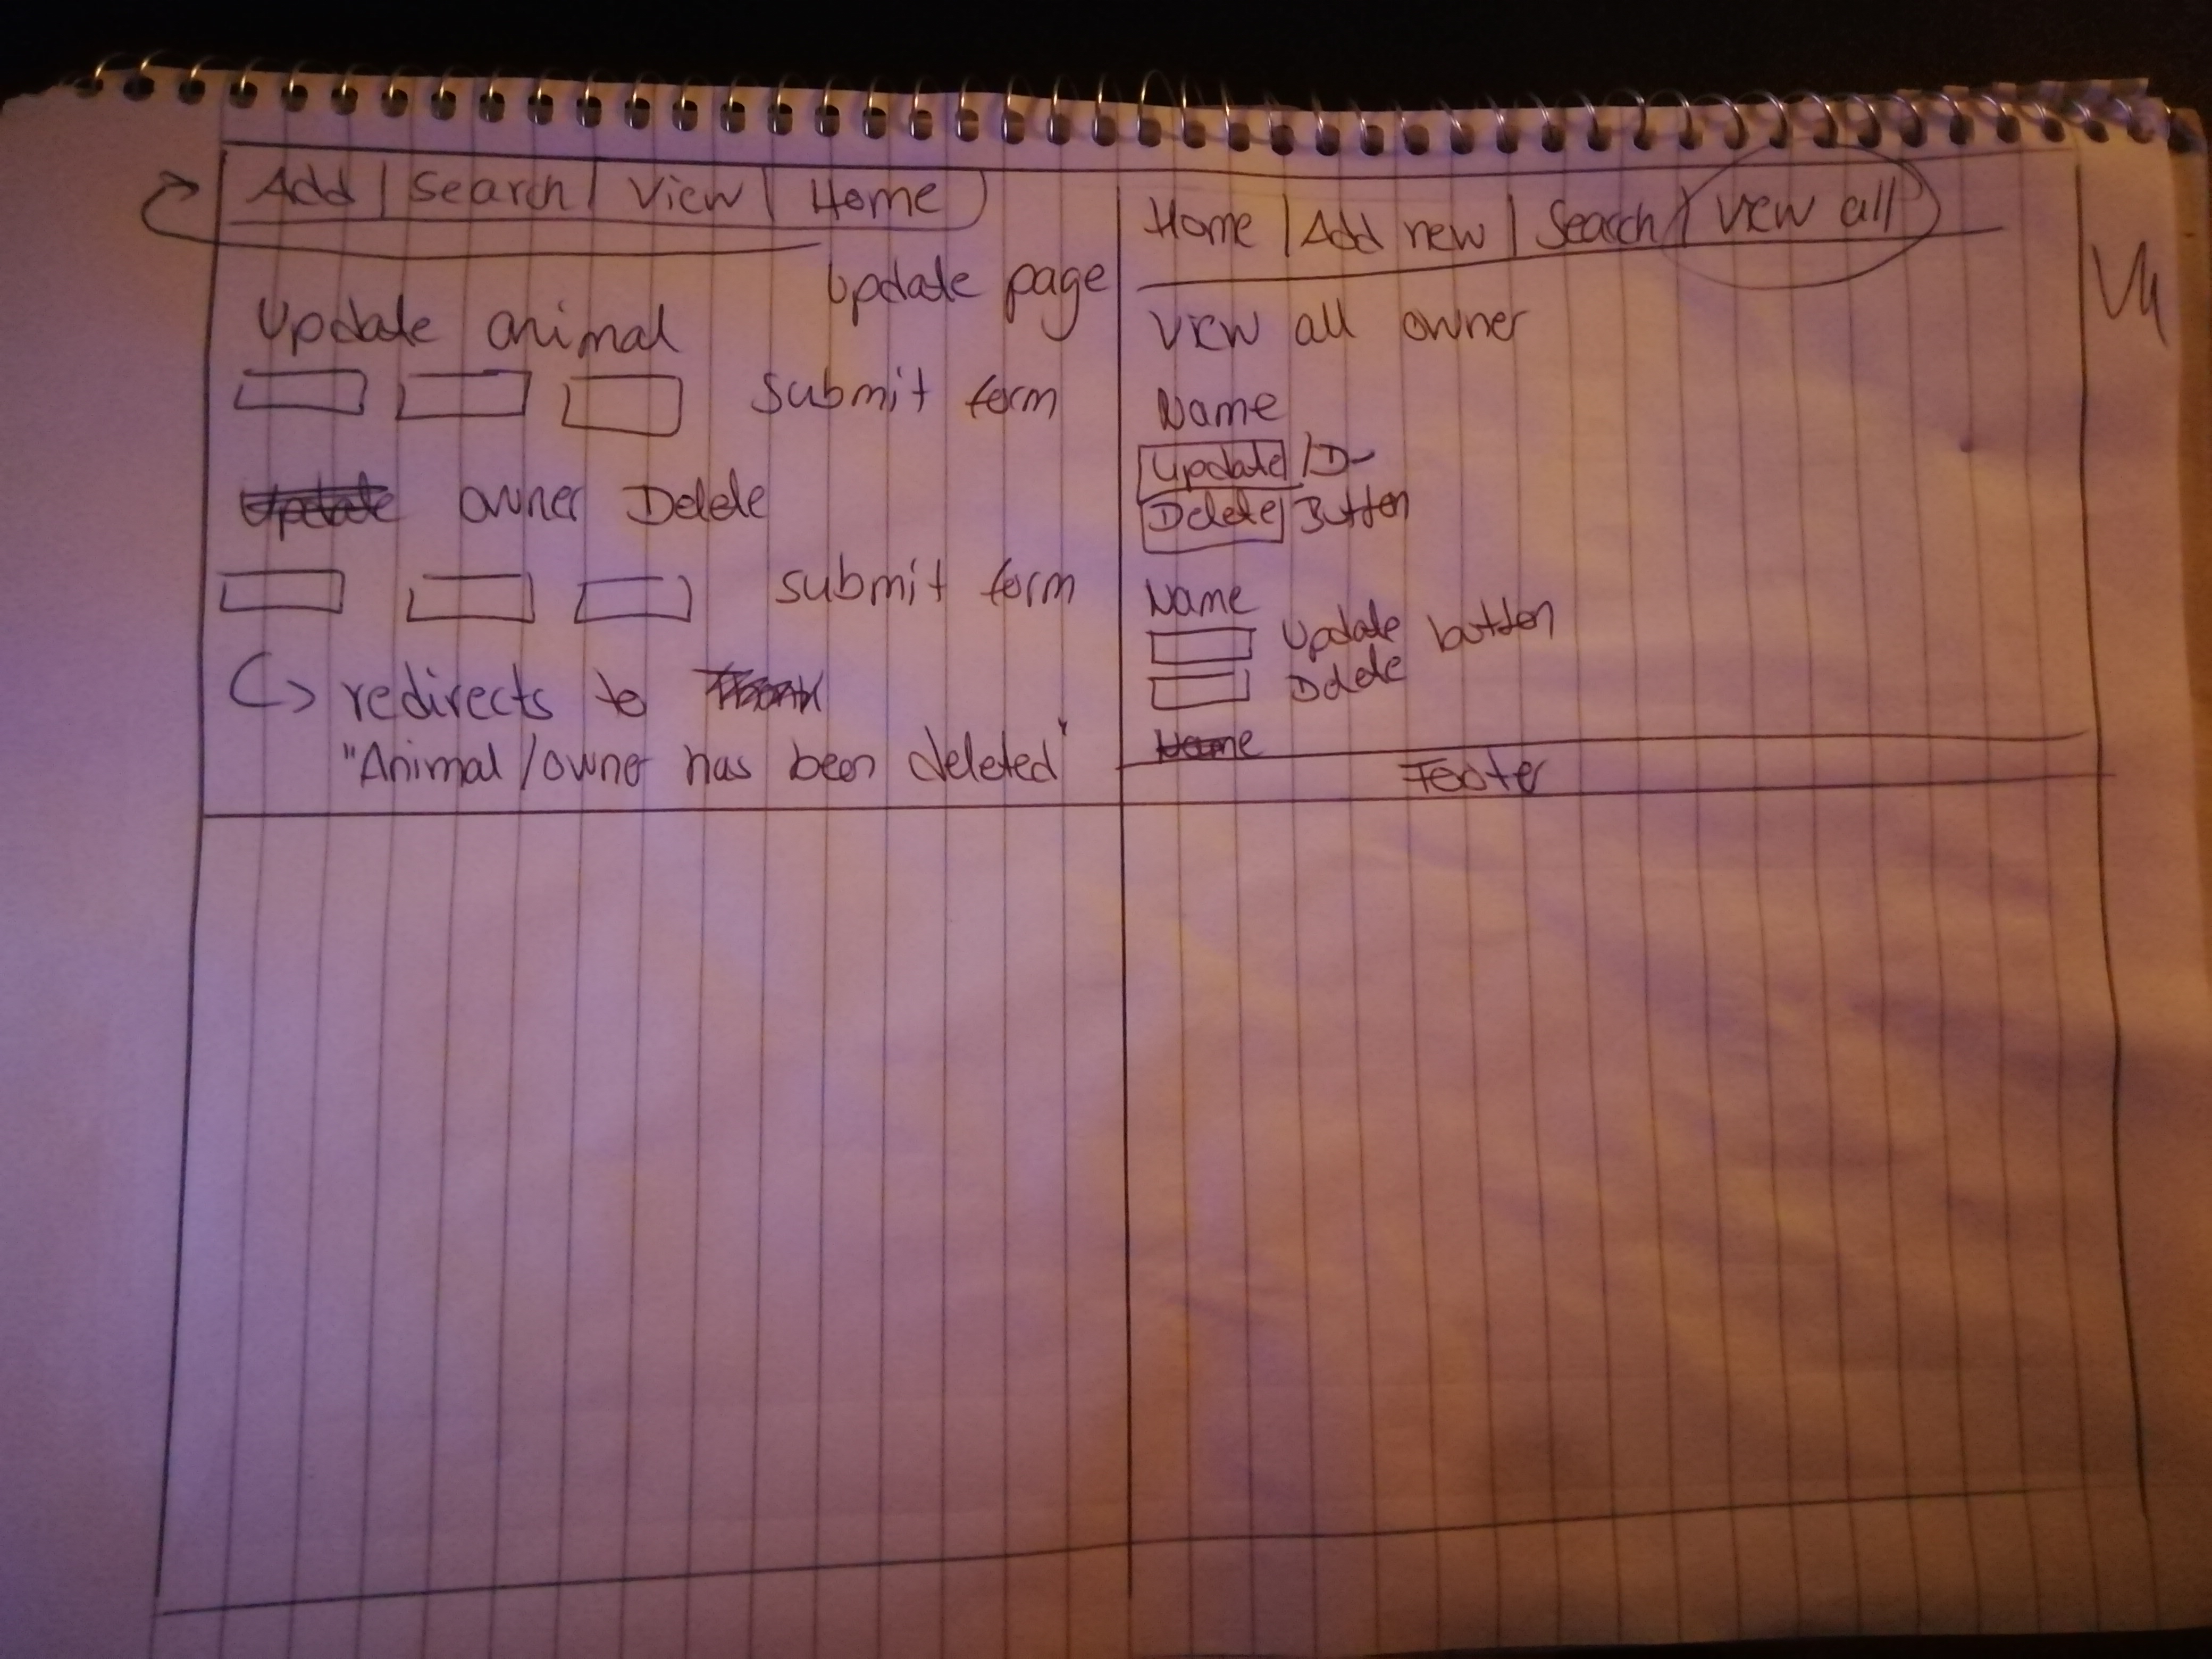 Add | Search | View | Home
Update page
Update animal
submit form
Update owner Delete
submit form
redirects to
"Animal/owner has been deleted"
Home | Add new | Search | View all
View all owner
Name
Update / D
Delete Button
Name
Update button
Delete
Name
Footer